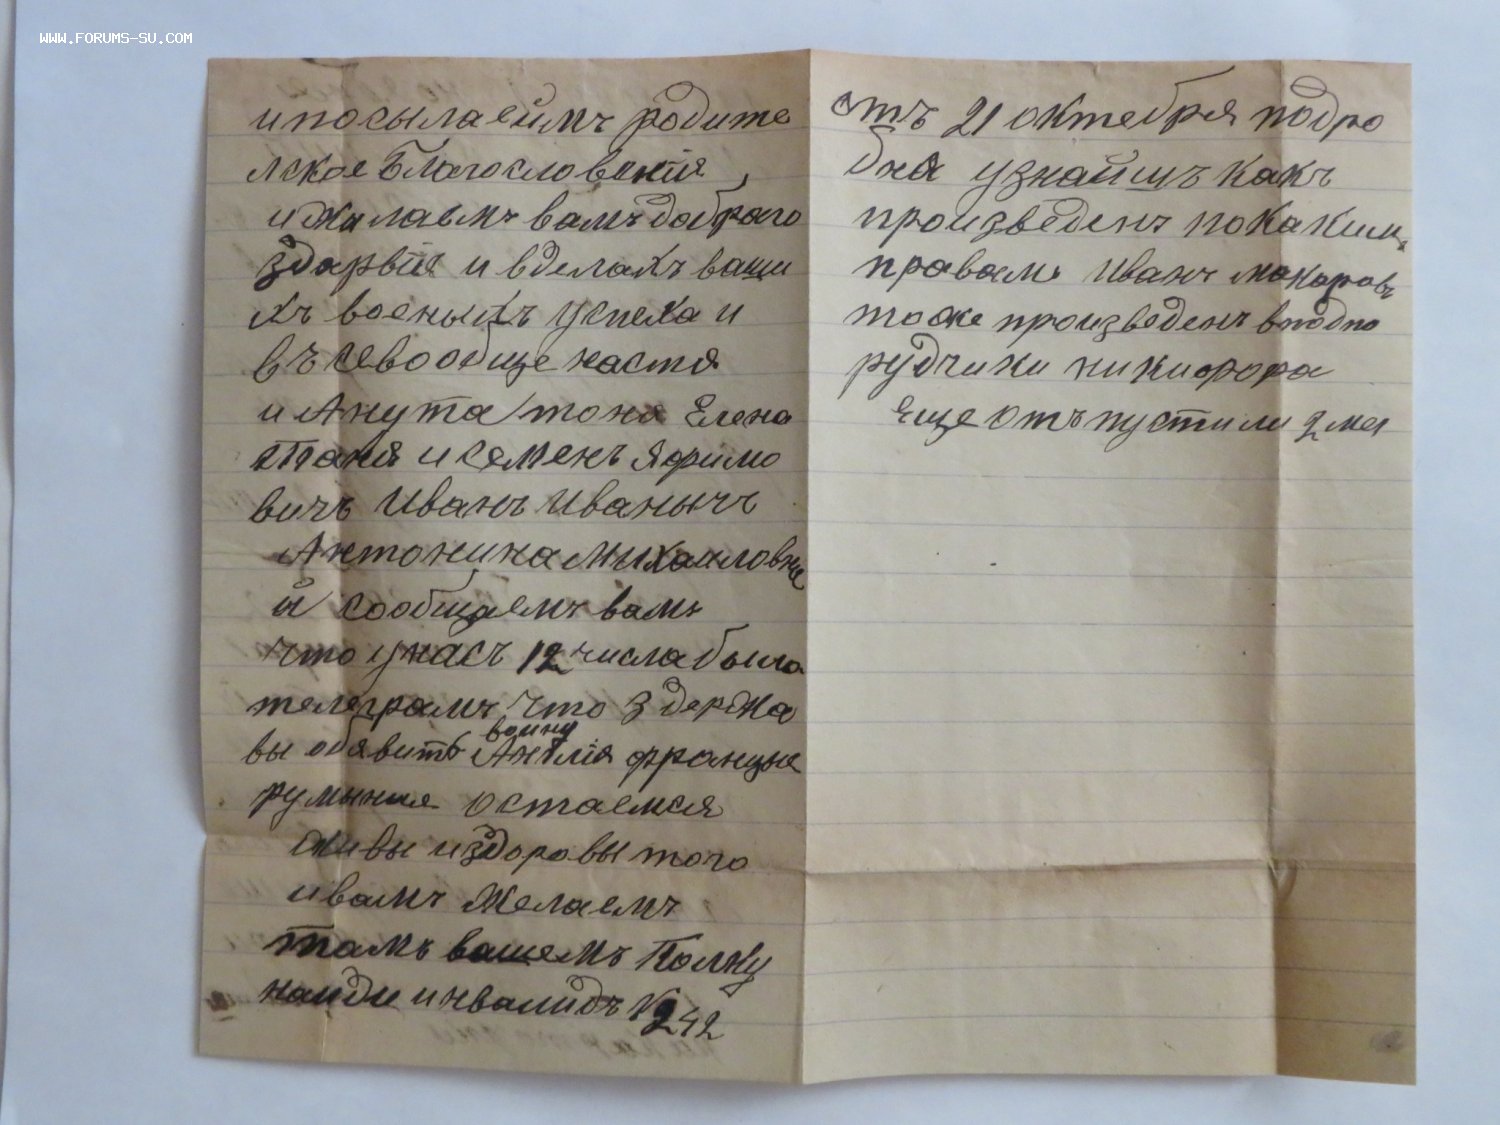 WWW.FORUMS-SU.COM
и посылаеймъ родите
лское Благословенія
и жилаемъ вамъ доброго
здарвія и вделахъ ваши
хъ военыхъ успеха и
въсевообще настя
и Анута тоня Елена
таня и семенъ Яфимо
вичъ Иванъ Иванычъ
Антонина Михаиловне
й сообщаемъ вамъ
что унасъ 12 числа была
телеграмъ что 3 держа
вы обявитъ войну Англія францыя
румыныя остаемся
живы издоровы того
ивамъ желаемъ
тамъ вашемъ Полку
наиди инвалидъ № 242
отъ 21 октебря подро
бна узнайишъ какъ
произведенъ покакимъ
правамъ Иванъ макаровъ
тоже произведенъ вподпо
рудчики никифора
Еще отъпустили 2 ме